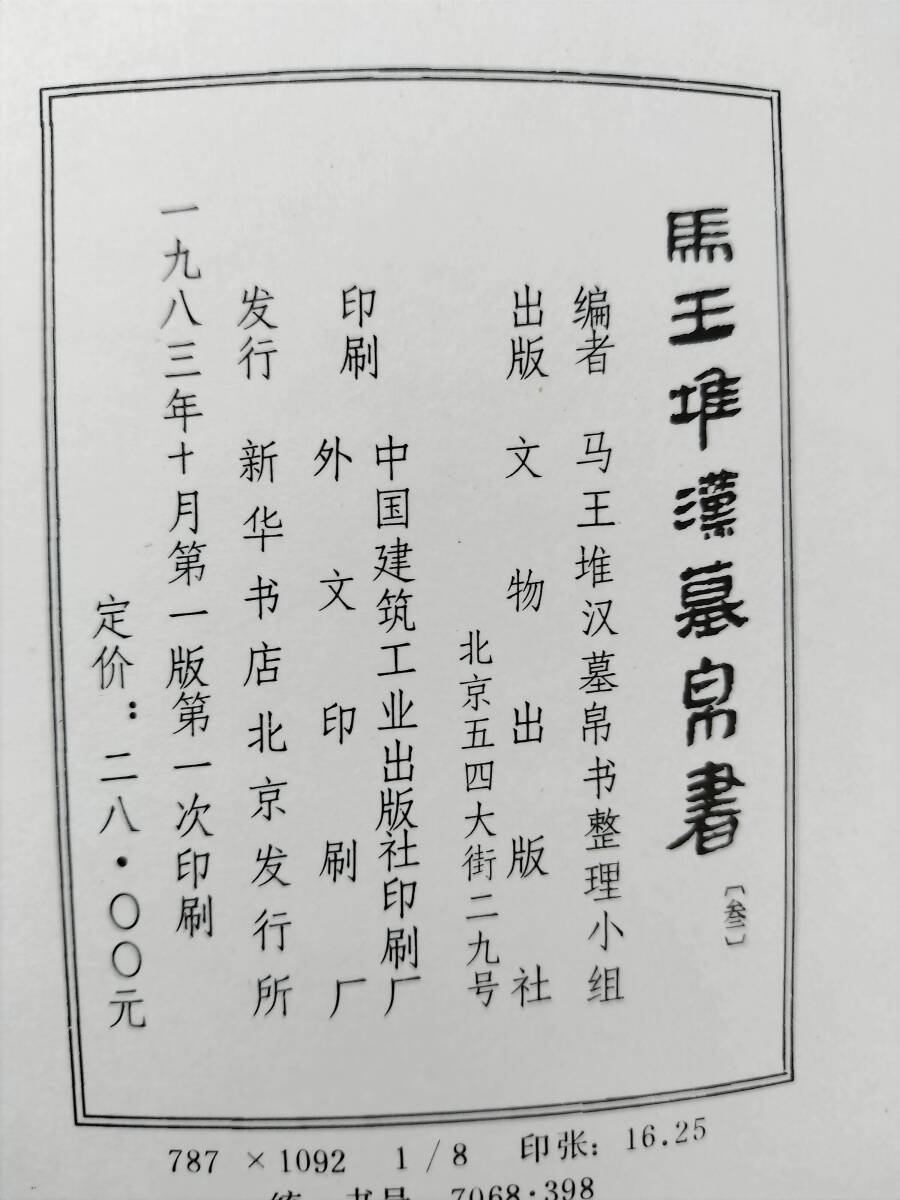 馬王堆漢墓帛書
〔叁〕
编者 马王堆汉墓帛书整理小组
出版 文物出版社
北京五四大街二九号
印刷 中国建筑工业出版社印刷厂
外文印刷厂
发行 新华书店北京发行所
一九八三年十月第一版第一次印刷
定价：二八·〇〇元
787 ×1092 1/8 印张：16.25
统一书号 7068·398